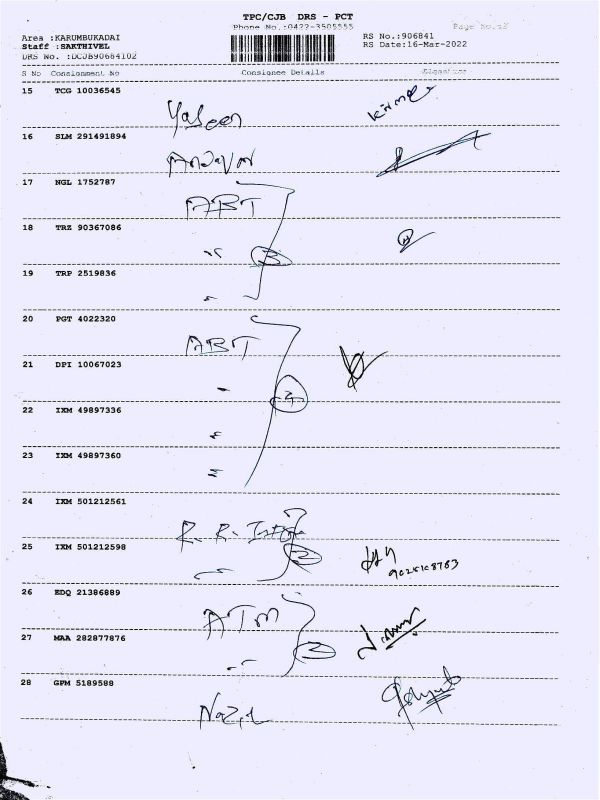 TPC/CJB DRS - PCT
Phone No.:0422-3505555
Area :KARUMBUKADAI
RS No.:906841
Staff :SAKTHIVEL
RS Date:16-Mar-2022
DRS No. :DCJB90684102
S No Consignment No Consignee Details
15 TCG 10036545
Yaseen
16 SLM 291491894
17 NGL 1752787
ABT
18 TRZ 90367086
"
3
19 TRP 2519836
"
20 PGT 4022320
ABT
21 DPI 10067023
"
4
22 IXM 49897336
"
23 IXM 49897360
"
24 IXM 501212561
R. R.
25 IXM 501212598
"
2
26 EDQ 21386889
ATM
27 MAA 282877876
"
2
28 GPM 5189588